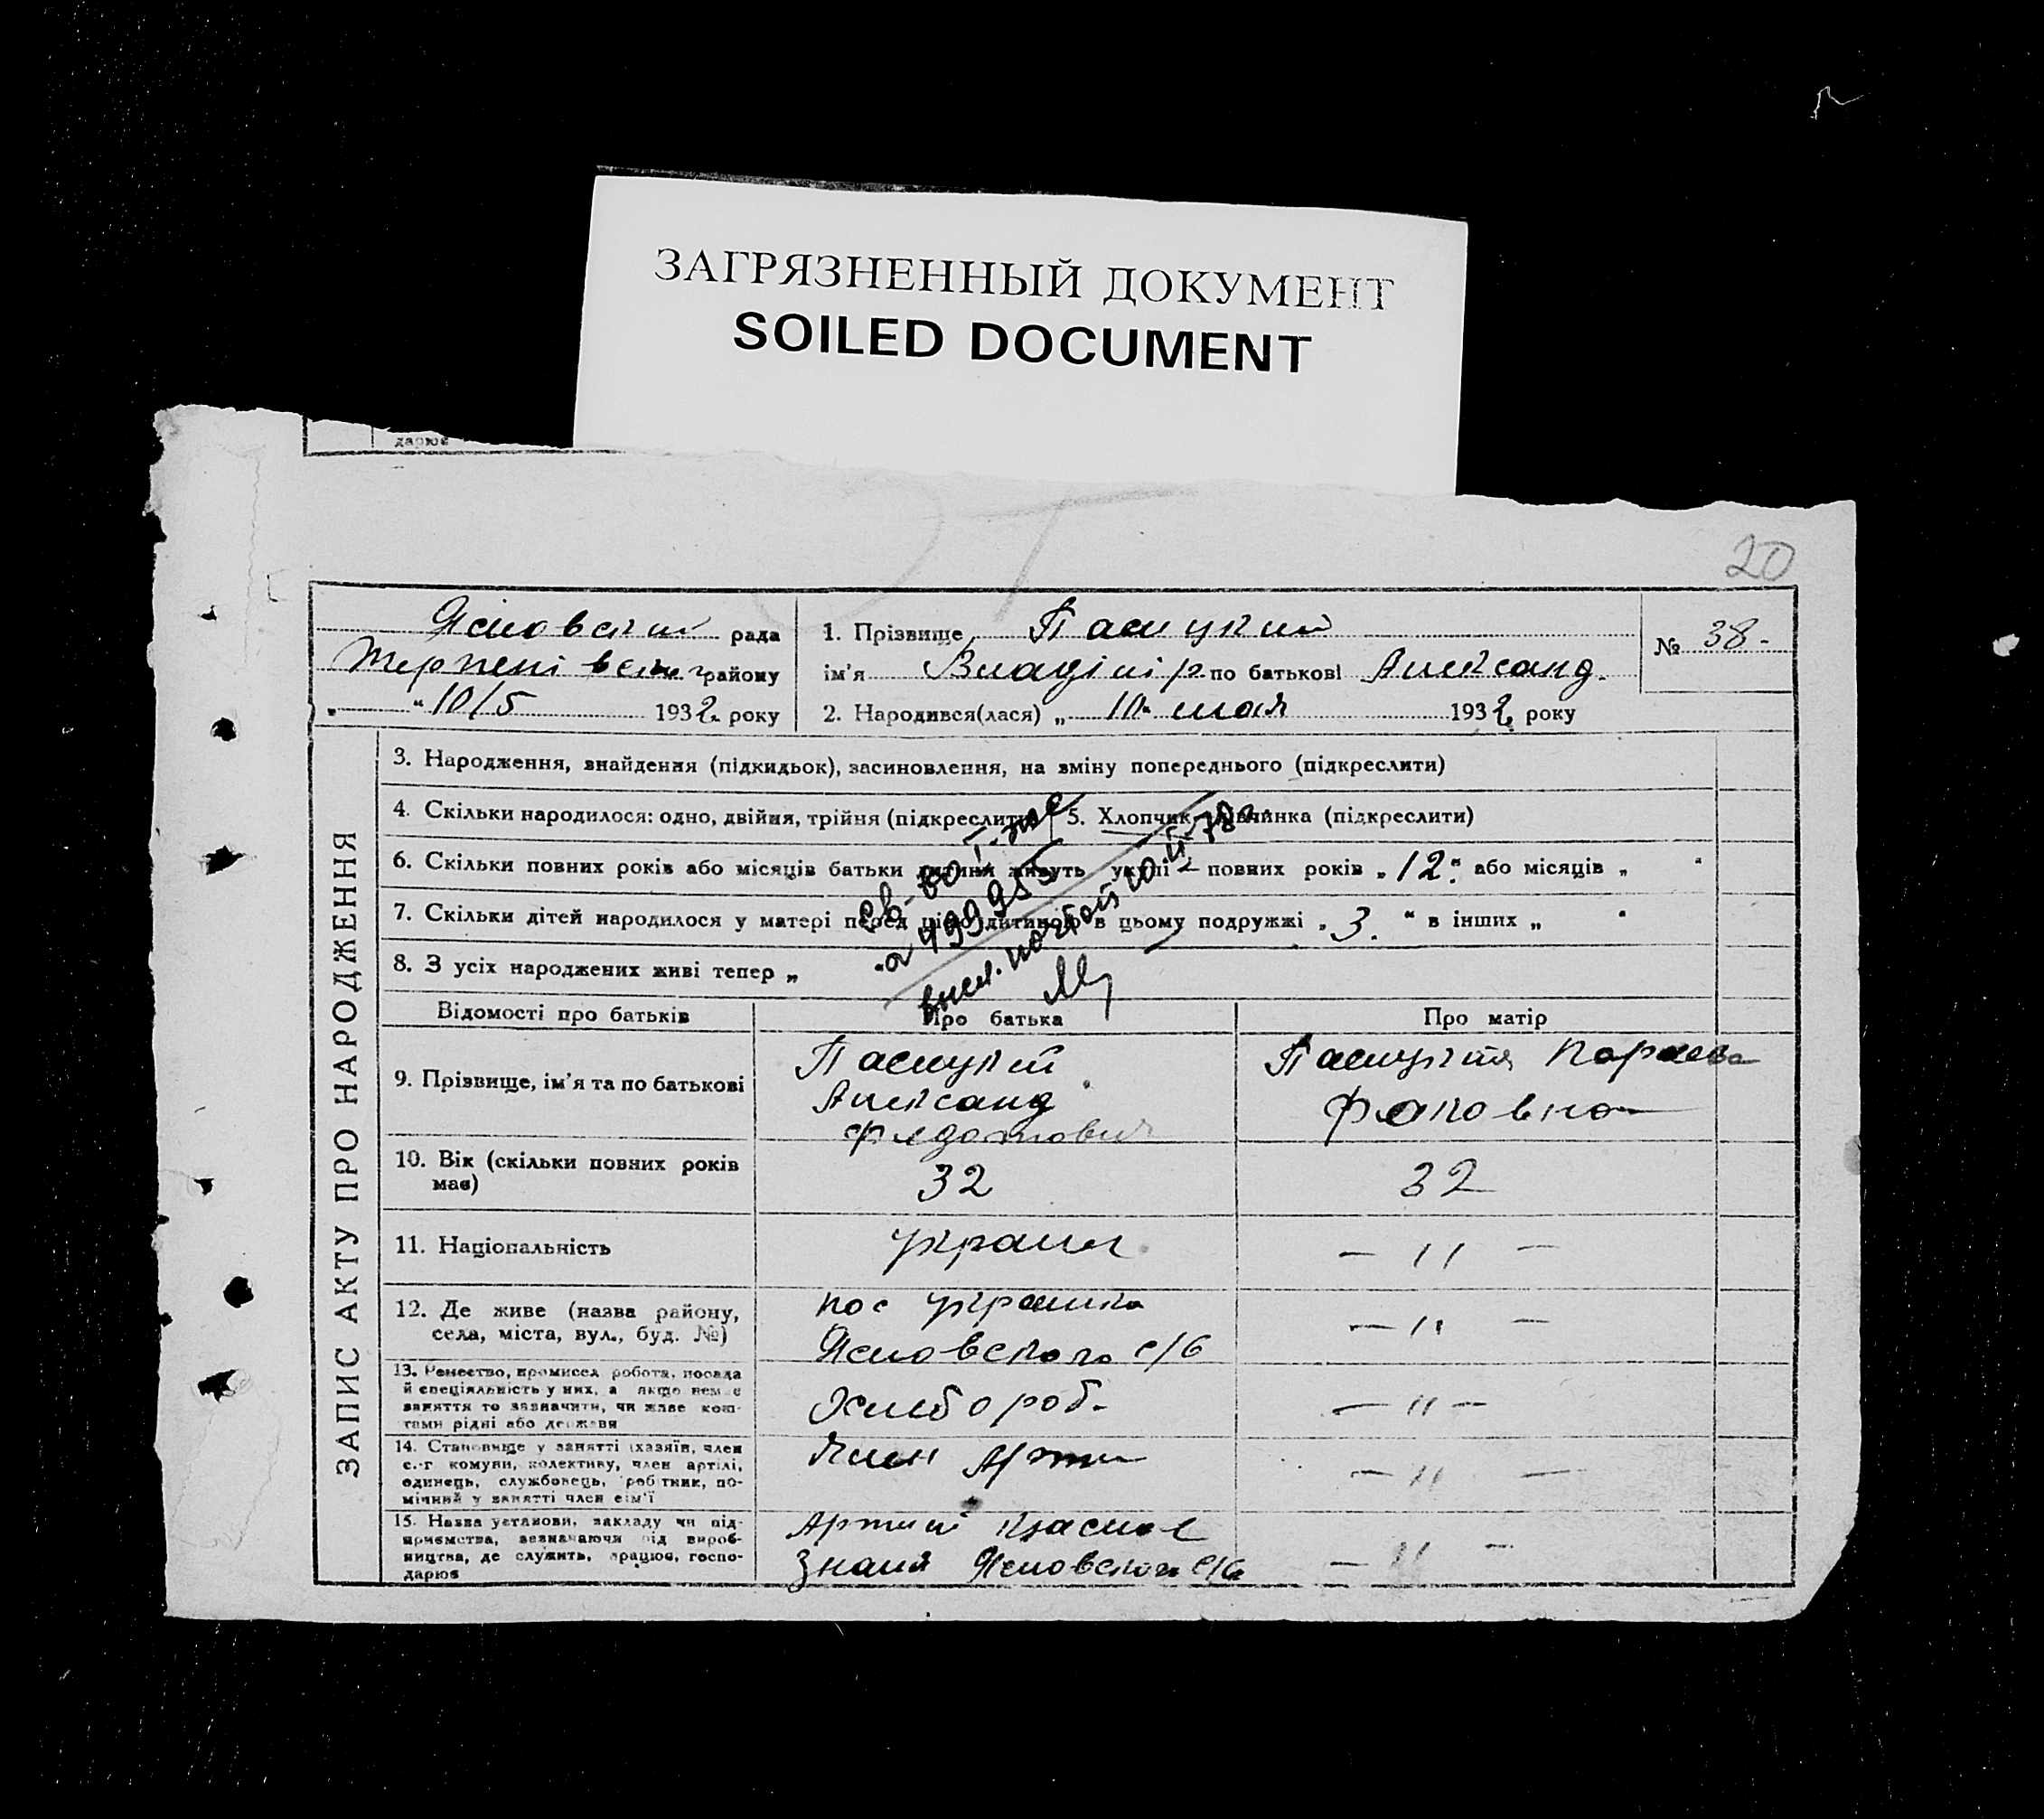 ЗАГРЯЗНЕННЫЙ ДОКУМЕНТ
SOILED DOCUMENT
дарює
20
рада
району
"10/5 1932 року
1. Прізвище
ім'я Владімір по батькові Александ.
2. Народився(лася) „ 10" мая 1932 року
№ 38-
ЗАПИС АКТУ ПРО НАРОДЖЕННЯ
3. Народження, знайдення (підкидьок), засиновлення, на зміну попереднього (підкреслити)
4. Скільки народилося: одно, двійня, трійня (підкреслити)
5. Хлопчик, дівчинка (підкреслити)
6. Скільки повних років або місяців батьки дитини живуть укупі — повних років „12" або місяців „ "
7. Скільки дітей народилося у матері перед цією дитиною в цьому подружжі „3." в інших „ "
8. З усіх народжених живі тепер „
499955
Відомості про батьків
Про батька
Про матір
9. Прізвище, ім'я та по батькові
Александ
Федотович
10. Вік (скільки повних років
має)
32
32
11. Національність
україн
— 11 —
12. Де живе (назва району,
села, міста, вул., буд. №)
пос Українка
с/б
— 11 —
13. Ремество, промисел робота, посада
й спеціяльність у них, а якщо немає
заняття то зазначити, чи живе кош-
тами рідні або держави
Хлебороб.
— 11 —
14. Становище у занятті (хазяїн, член
с.-г комуни, колективу, член артілі,
одинець, службовець, робітник, по-
мічний у занятті член сім'ї
Член Арти
— 11 —
15. Назва установи, закладу чи під-
приємства, зазначаючи рід вироб-
ництва, де служить, працює, госпо-
дарює
Артілі Красное
Знамя с/б
— 11 —